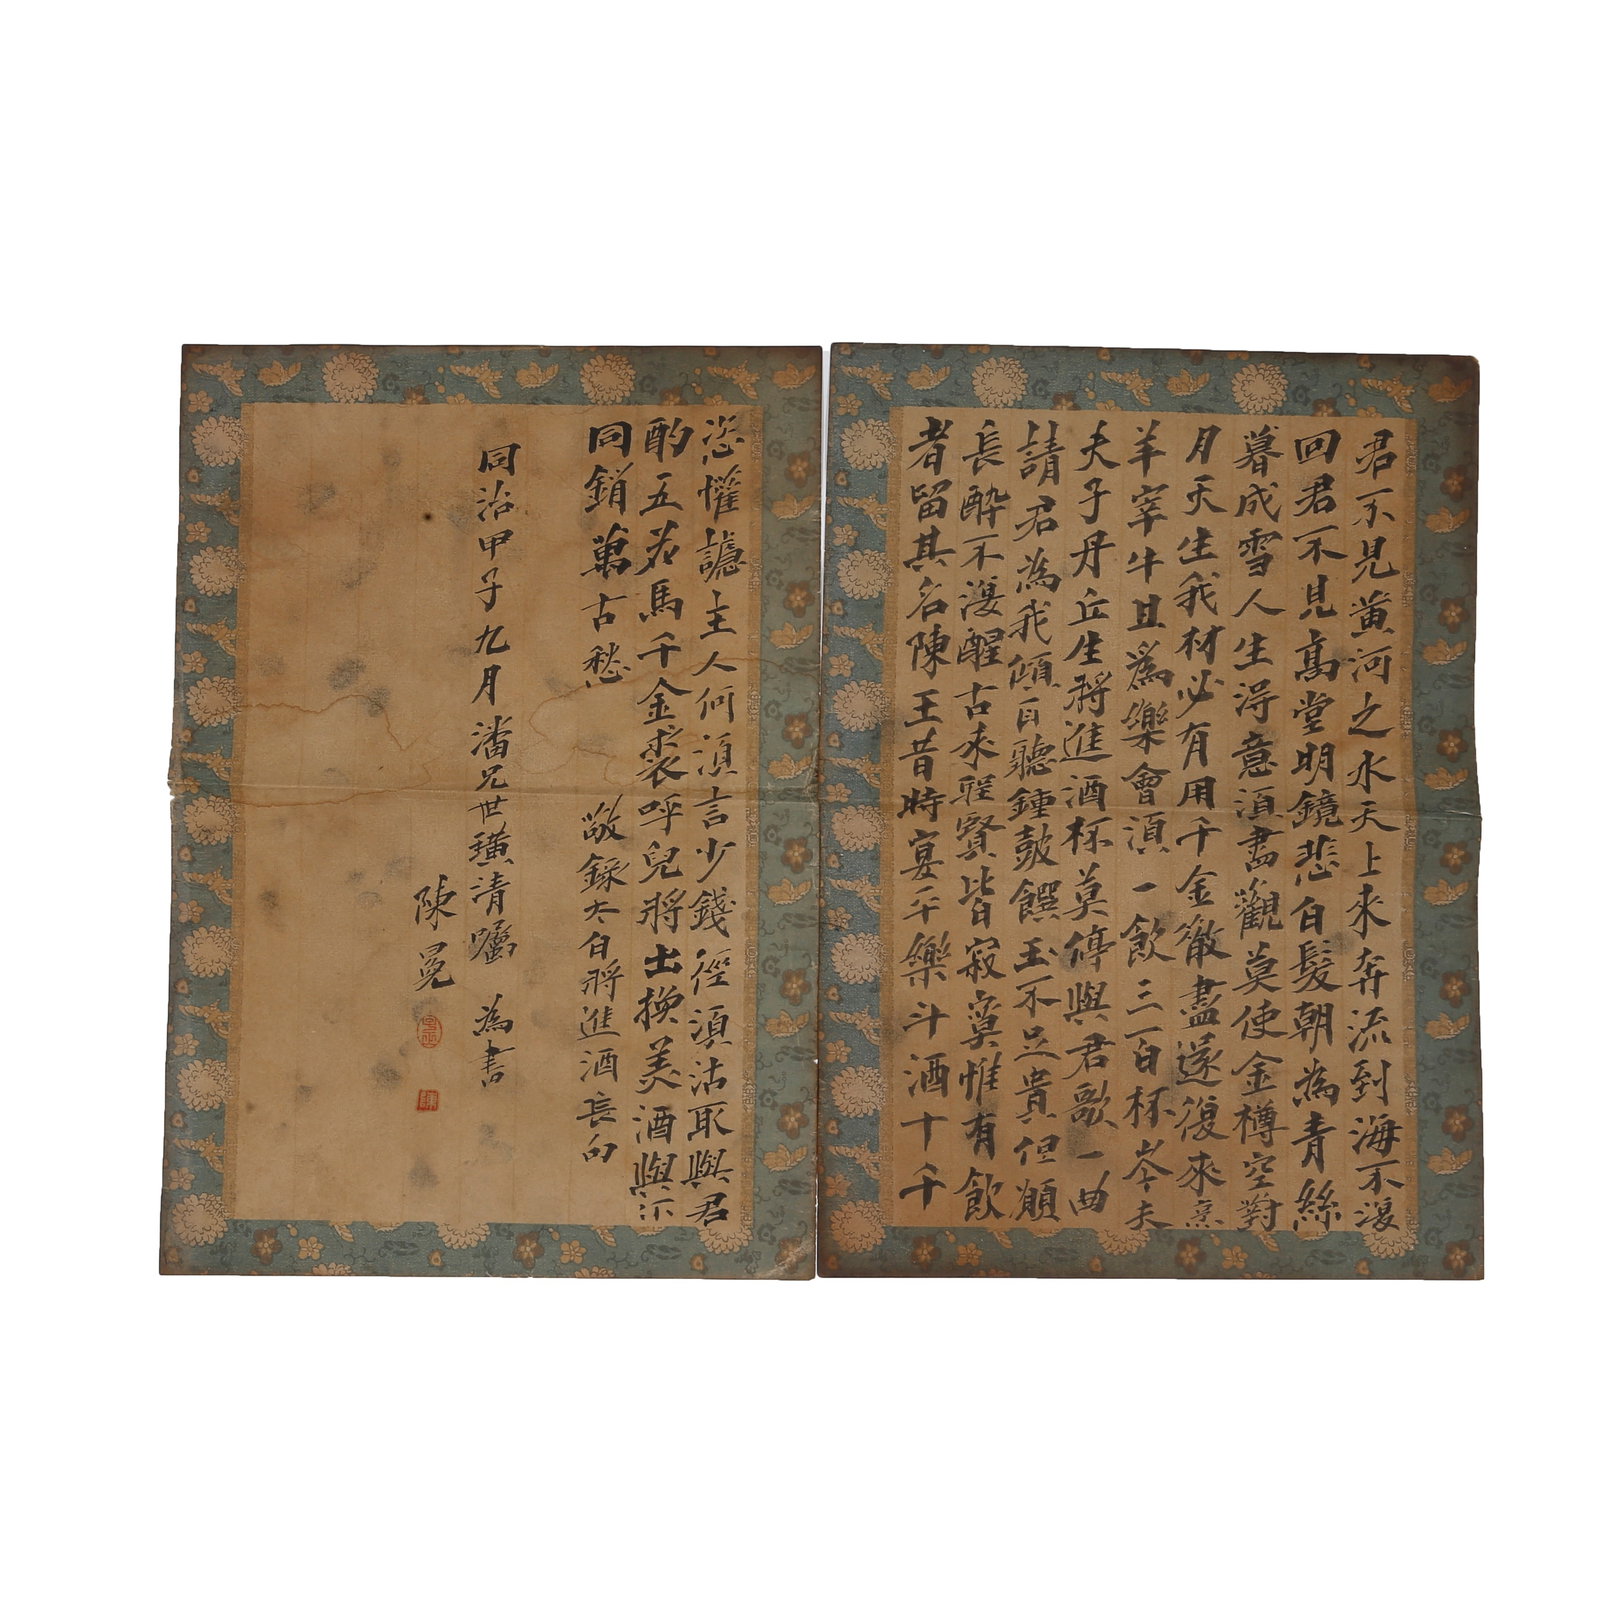 君不見黃河之水天上來奔流到海不復
回君不見高堂明鏡悲白髮朝為青絲
暮成雪人生得意須盡觀莫使金樽空對
月天生我材必有用千金散盡還復來烹
羊宰牛且為樂會須一飲三百杯岑夫
夫子丹丘生將進酒杯莫停與君歌一曲
請君為我傾耳聽鍾鼓饌玉不足貴但願
長醉不復醒古來聖賢皆寂寞惟有飲
者留其名陳王昔時宴平樂斗酒十千
恣懽謔主人何須言少錢徑須沽取與君
酌五花馬千金裘呼兒將出換美酒與尔
同銷萬古愁
敬錄太白將進酒長句
同治甲子九月潘兄世璜清囑 為書
陳冕